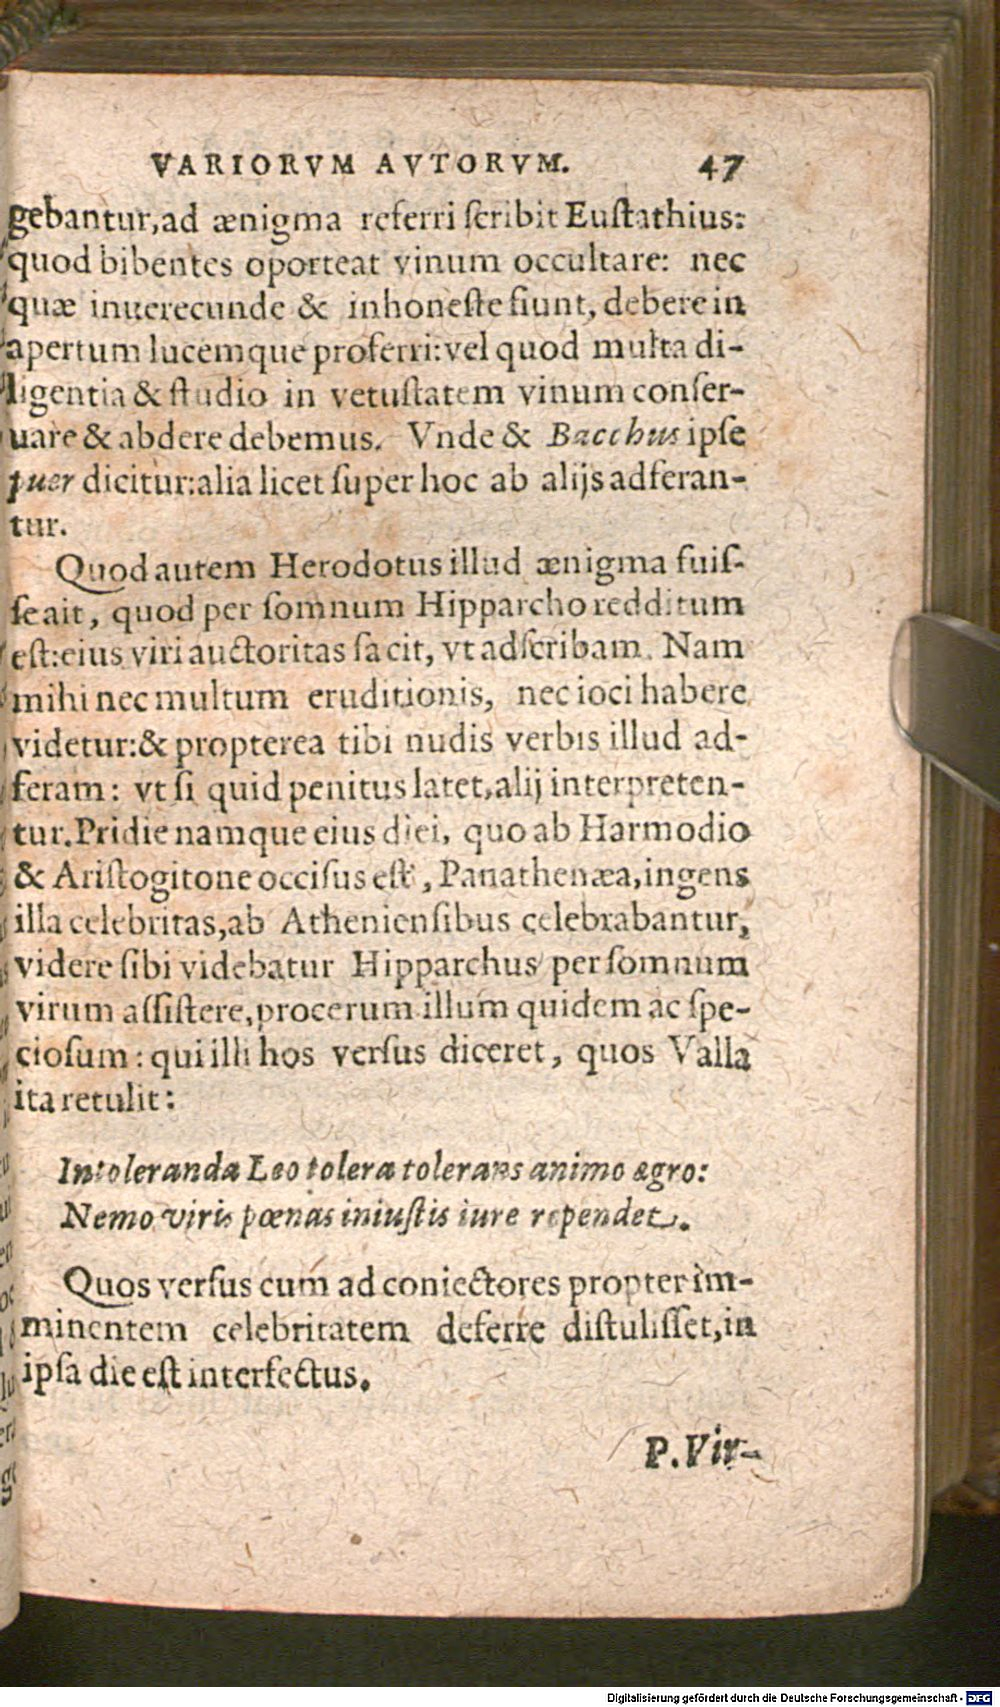 VARIORVM AVTORVM. 47
gebantur, ad ænigma referri ſcribit Euſtathius:
quod bibentes oporteat vinum occultare: nec
quæ inuerecunde & inhoneſte fiunt, debere in
apertum lucemque proferri: vel quod multa di-
ligentia & ſtudio in vetuſtatem vinum conſer-
uare & abdere debemus. Vnde & Bacchus ipſe
puer dicitur: alia licet ſuper hoc ab alijs adferan-
tur.
Quod autem Herodotus illud ænigma fuiſ-
ſe ait, quod per ſomnum Hipparcho redditum
eſt: eius viri auctoritas facit, vt adſcribam. Nam
mihi nec multum eruditionis, nec ioci habere
videtur: & propterea tibi nudis verbis illud ad-
feram: vt ſi quid penitus latet, alij interpreten-
tur. Pridie namque eius diei, quo ab Harmodio
& Ariſtogitone occiſus eſt, Panathenæa, ingens
illa celebritas, ab Athenienſibus celebrabantur,
videre ſibi videbatur Hipparchus per ſomnum
virum aſſiſtere, procerum illum quidem ac ſpe-
cioſum: qui illi hos verſus diceret, quos Valla
ita retulit:
Intoleranda Leo tolera tolerans animo ægro:
Nemo viris pœnas iniuſtis iure rependet.
Quos verſus cum ad coniectores propter im-
minentem celebritatem deferre diſtuliſſet, in
ipſa die eſt interfectus.
P. Vir-
Digitalisierung gefördert durch die Deutsche Forschungsgemeinschaft - DFG